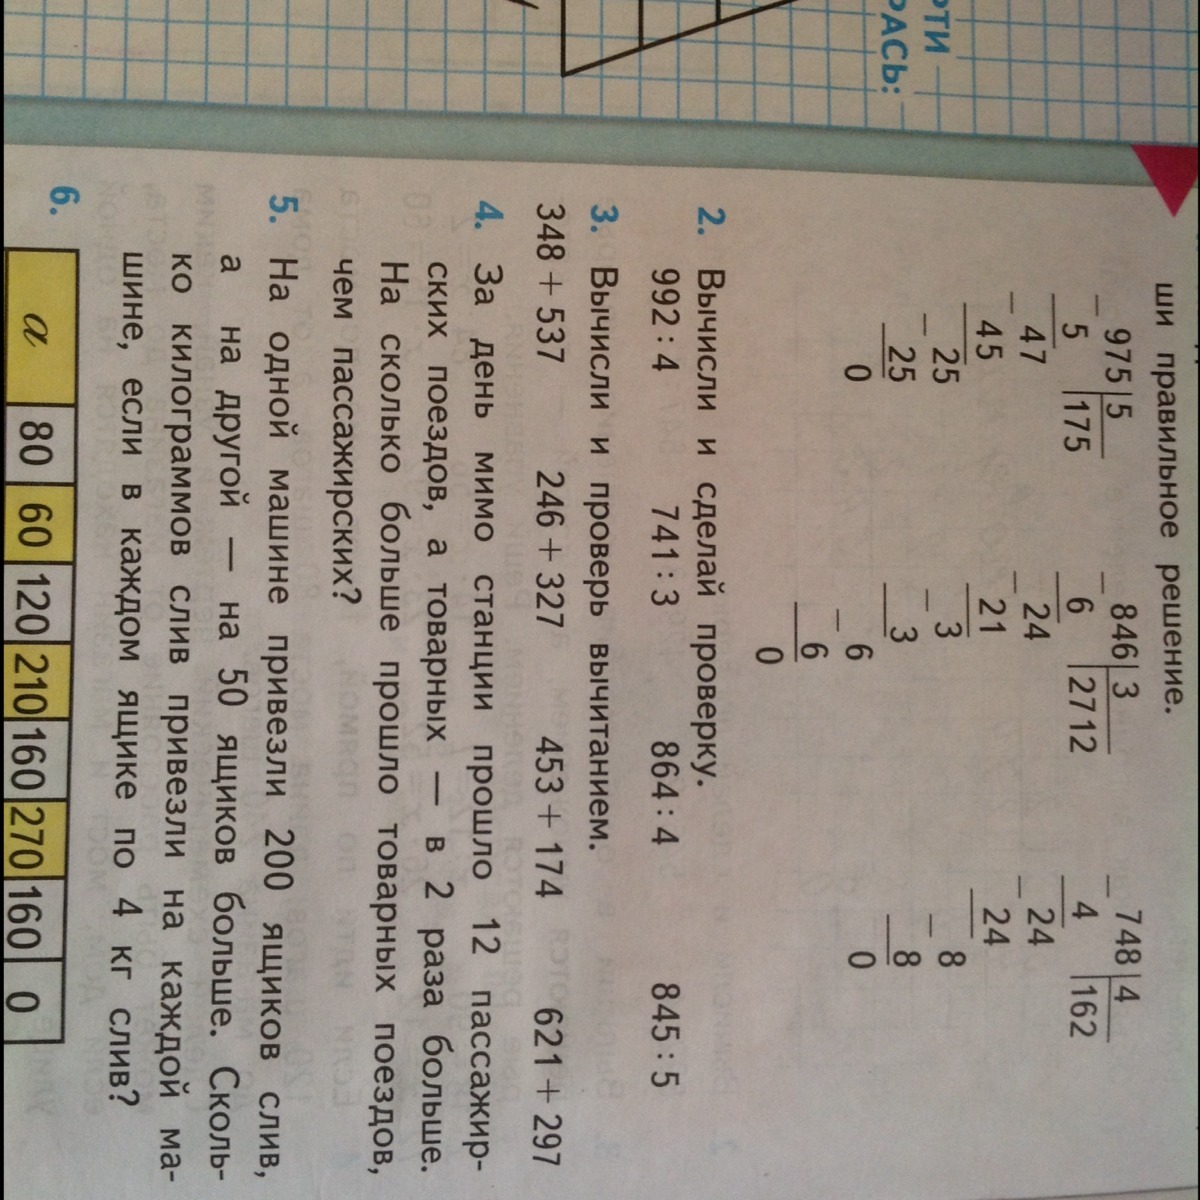 РТИ
РАСЬ:
ши правильное решение.
975|5 846|3 748|4
5 |175 6 |2712 4 |162
47 24 24
45 21 24
25 3 8
25 3 8
0 6 0
6
0
2. Вычисли и сделай проверку.
992 : 4 741 : 3 864 : 4 845 : 5
3. Вычисли и проверь вычитанием.
348 + 537 246 + 327 453 + 174 621 + 297
4. За день мимо станции прошло 12 пассажир-
ских поездов, а товарных — в 2 раза больше.
На сколько больше прошло товарных поездов,
чем пассажирских?
5. На одной машине привезли 200 ящиков слив,
а на другой — на 50 ящиков больше. Сколь-
ко килограммов слив привезли на каждой ма-
шине, если в каждом ящике по 4 кг слив?
6.
a 80 60 120 210 160 270 160 0